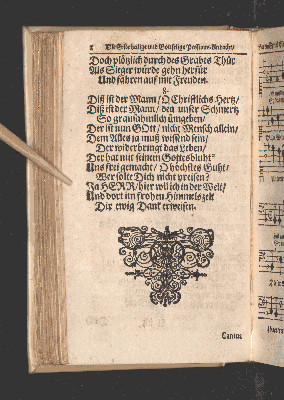 Doch plötzlich durch des Grabes Thür
Als Sieger würde gehn herfür
Und fahren auf mit Freuden.
8.
Diß ist der Mann/ O Christlichs Hertz/
Diß ist der Mann/ den unser Schmertz
So grausamlich umgeben/
Der ist nun GOtt/ nicht Mensch allein/
Dem Alles ja muß wissend sein/
Der widerbringt das Leben/
Der hat mit seinem Gottesbluht
Uns frei gemacht/ O höchstes Guht/
Wer solte Dich nicht preisen?
Ja HERR/ hier wil ich in der Welt/
Und dort im frohen Himmelszelt
Dir ewig Dank erweisen.
Cantus